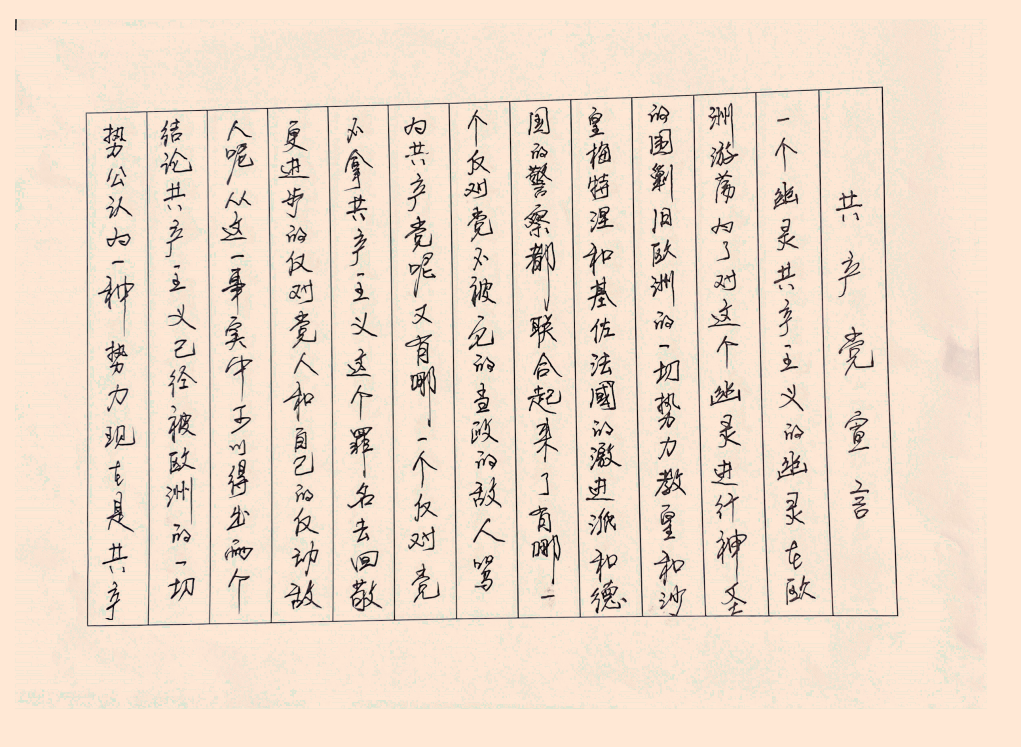 共产党宣言
一个幽灵共产主义的幽灵在欧
洲游荡为了对这个幽灵进行神圣
的围剿旧欧洲的一切势力教皇和沙
皇梅特涅和基佐法國的激进派和德
国的警察都联合起来了有哪一
个反对党不被它的查政的敌人骂
为共产党呢又有哪一个反对党
不拿共产主义这个罪名去回敬
更进步的反对党人和自己的反动敌
人呢从这一事实中可以得出两个
结论共产主义已经被欧洲的一切
势公认为一种势力现在是共产